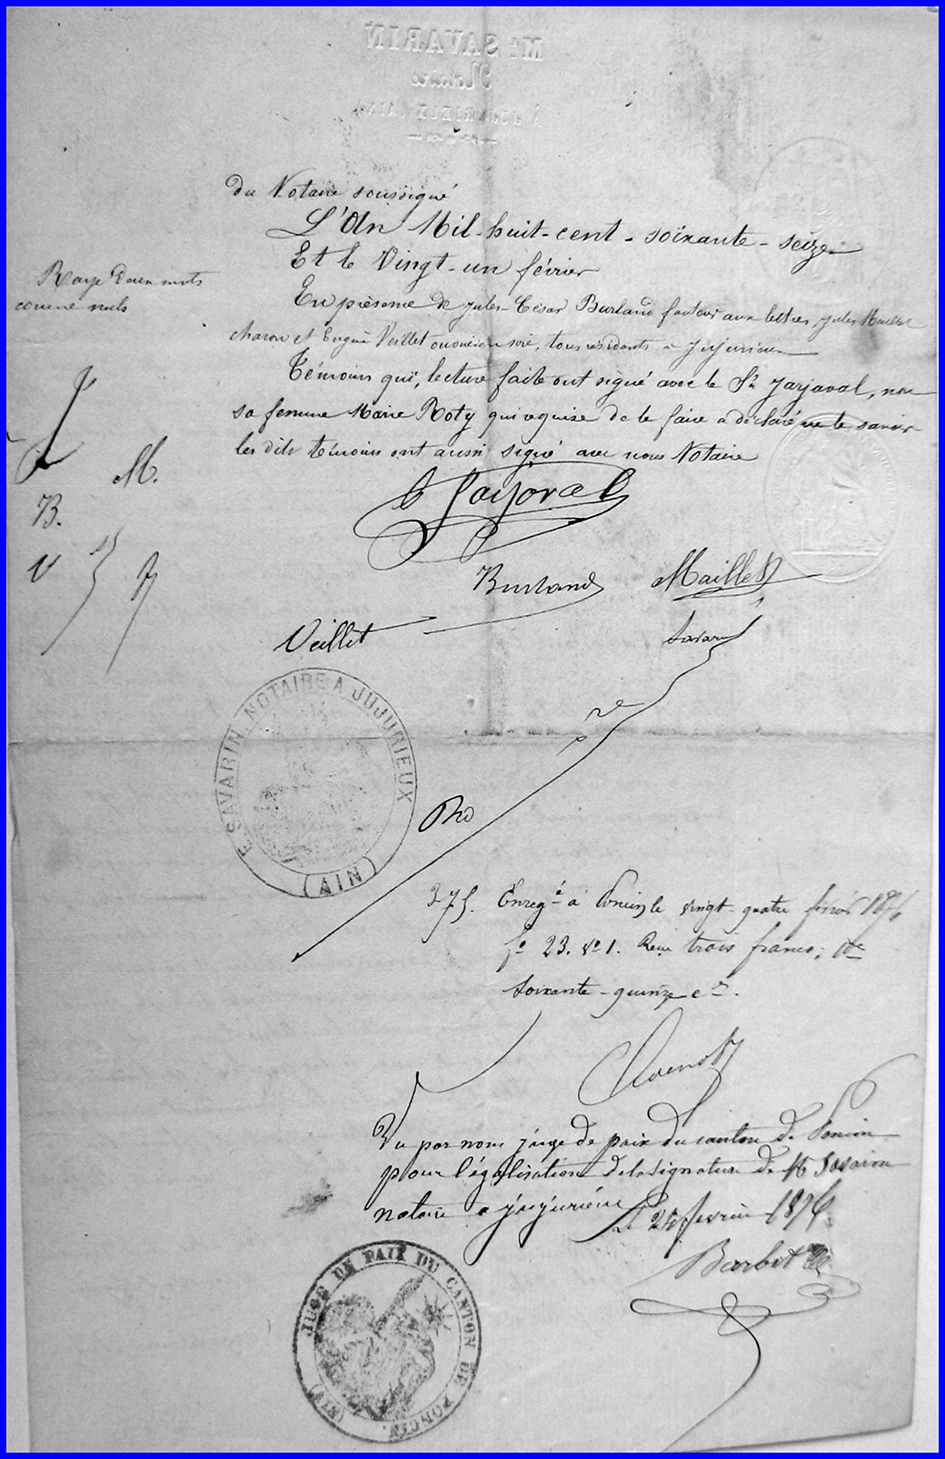 Me SAVARIN
Notaire
du Notaire soussigné
L'An Mil-huit-cent-soixante-seize
Et le Vingt-un février
En présence de Jules-César Burland facteur aux lettres, Jules Maillet
charon et Veillet ouvrier en soie, tous résidants à Jujurieux
Témoins qui, lecture faite ont signé avec le Sr Jarjaval, non
sa femme Marie Roty qui requise de le faire a déclaré ne le savoir
les dits témoins ont aussi signé avec nous Notaire
Rayé deux mots
comme nuls
J M.
B.
V
Jarjaval
Burland Maillet
Veillet Savarin
E. SAVARIN NOTAIRE A JUJURIEUX
(AIN)
375. Enregé à Poncin le vingt-quatre février 1876
fo 23. Vo 1. Reçu trois francs; Dme
soixante-quinze ces.
Vu par nous juge de paix du canton de Poncin
pour légalisation de la signature de Me Savarin
notaire a jujurieux Le 24 fevrier 1876.
Barbet
JUGE DE PAIX DU CANTON DE PONCIN.
(AIN)